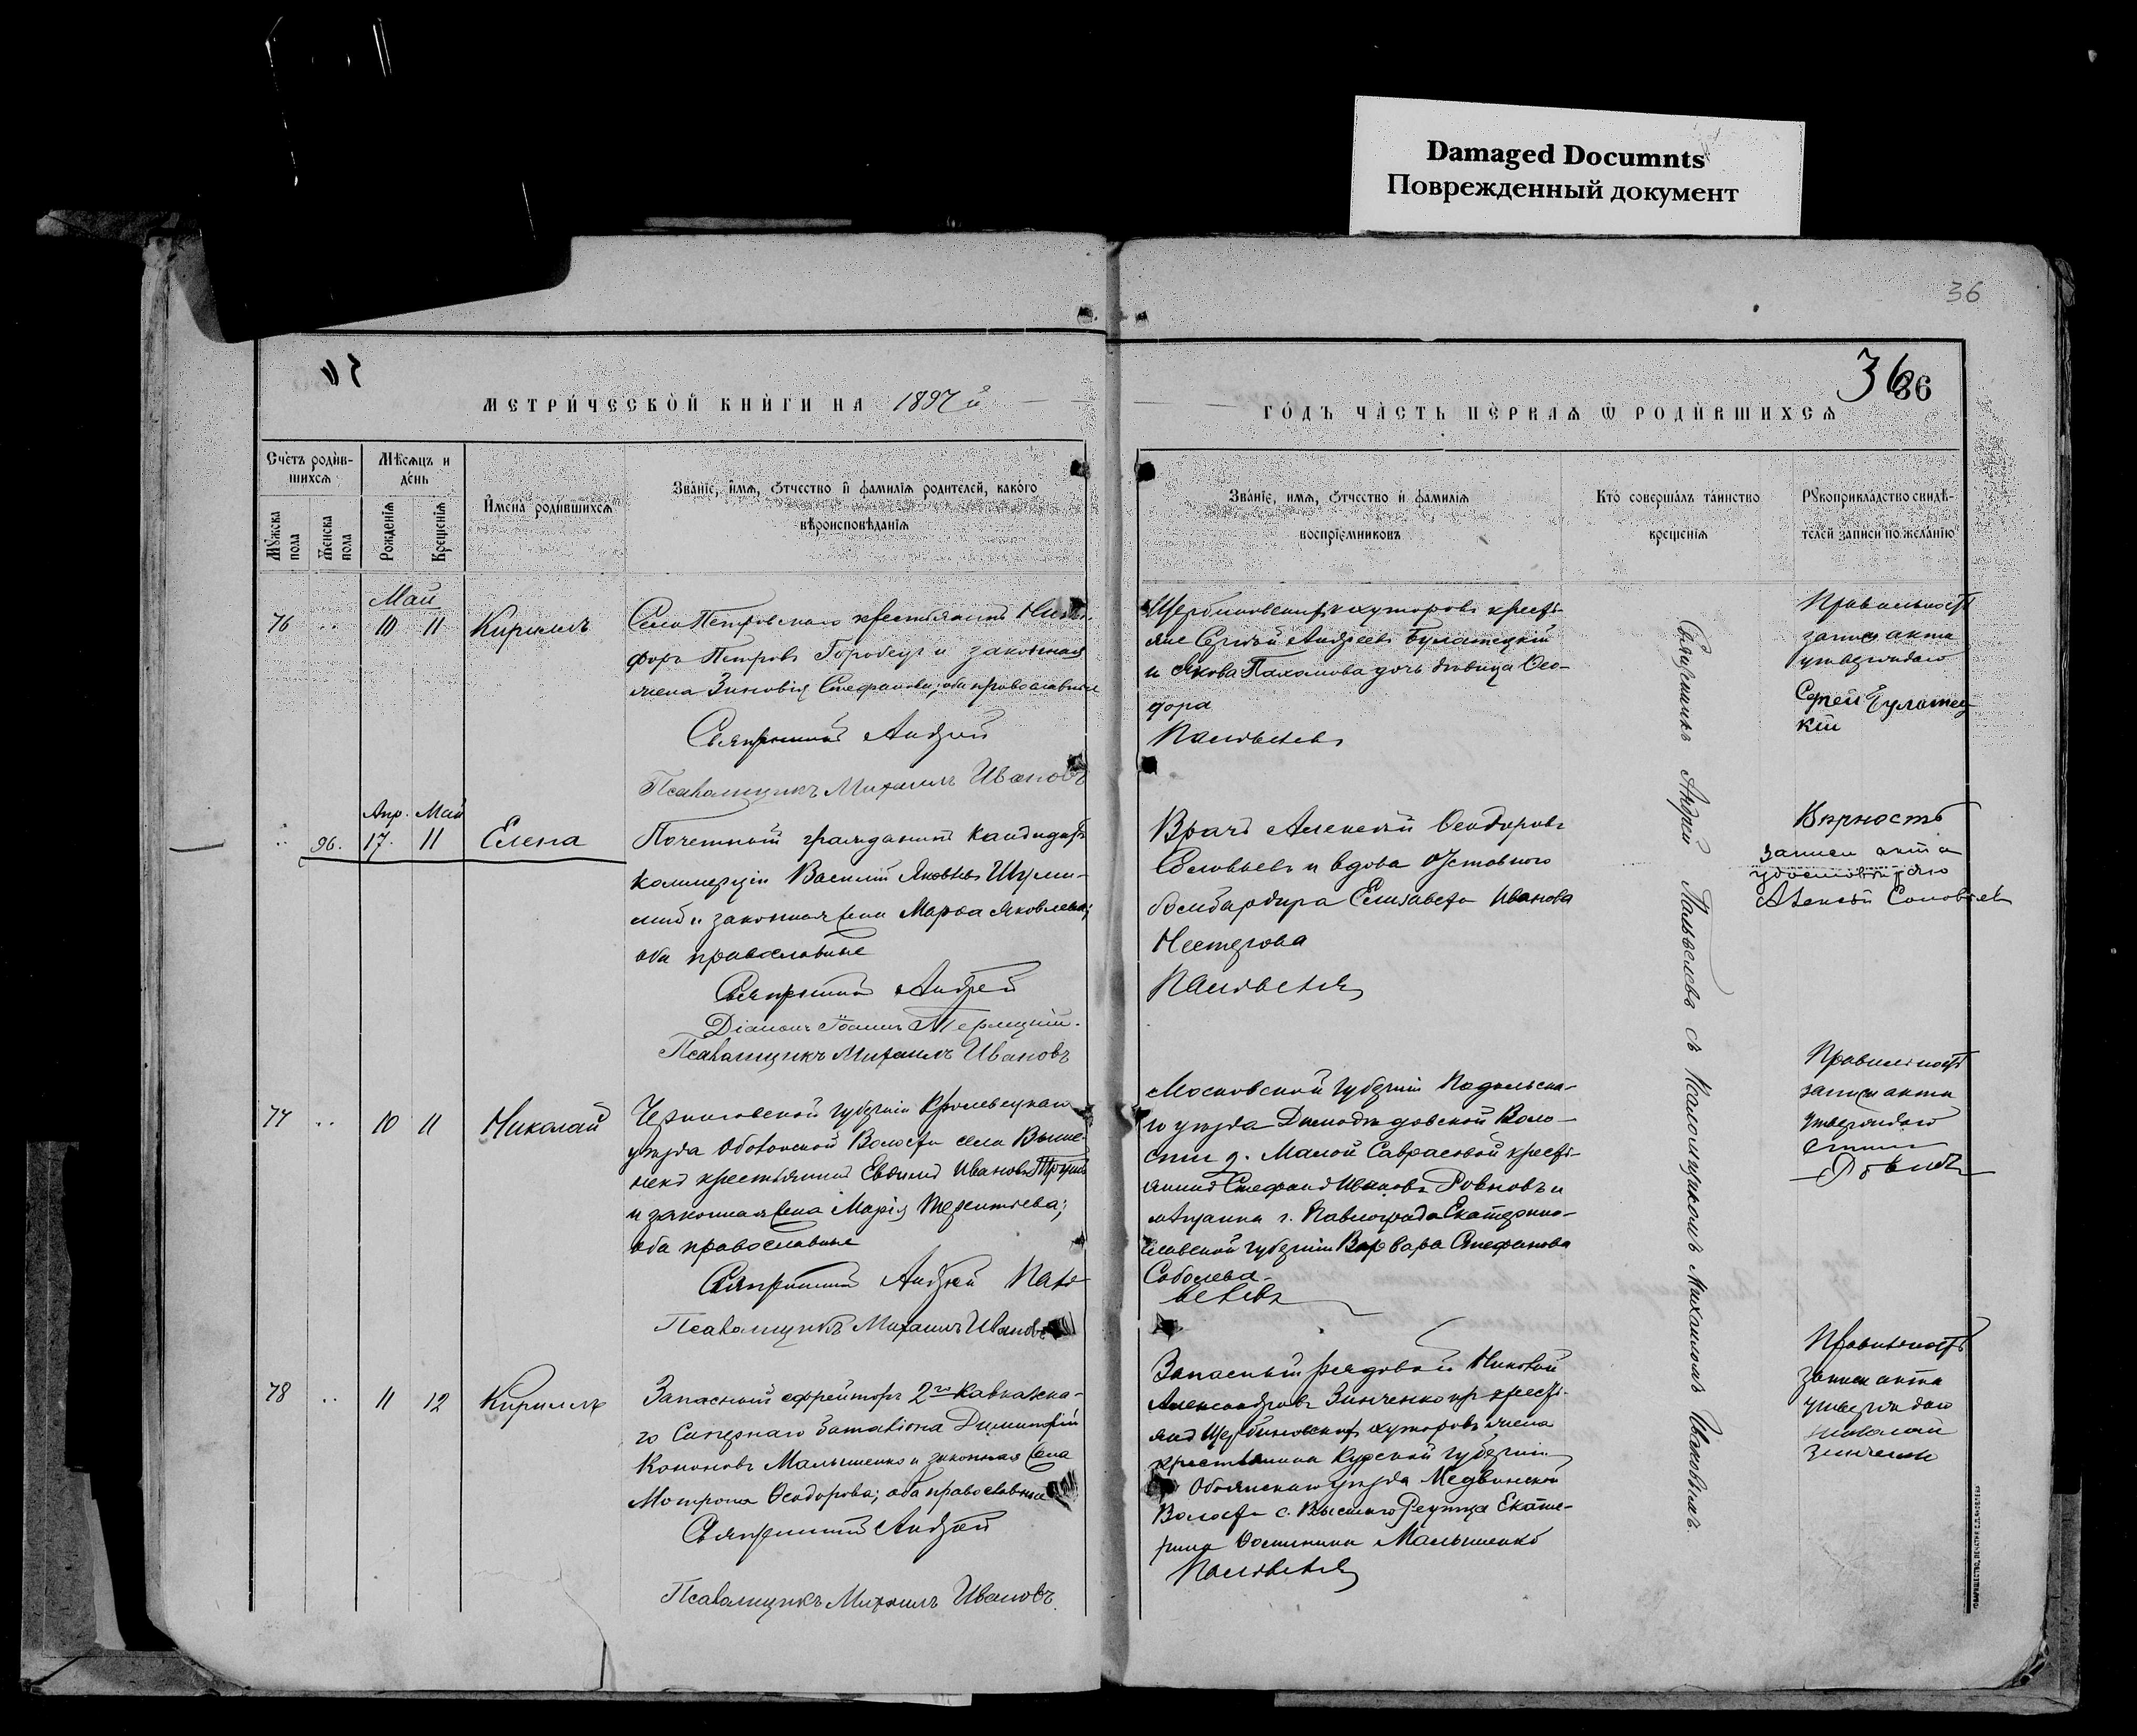 Damaged Documnts
Поврежденный документ
36
36
36
МЕТРИЧЕСКОЙ КНИГИ НА 1897й
ГОДЪ ЧАСТЬ ПЕРВАЯ Ѿ РОДИВШИХСЯ
Счетъ родив-
шихся
Мѣсяцъ и
день
Мужска
пола
Женска
пола
Рожденія
Крещенія
Имена родившихся
Званіе, имя, отчество и фамилія родителей, какого
вѣроисповѣданія
Званіе, имя, отчество и фамилія
воспріемниковъ
Кто совершалъ таинство
крещенія
Рукоприкладство свидѣ-
телей записи по желанію
Май
76 10 11 Кириллъ
Села Петровскаго крестьянинъ Ники-
форъ Петровъ Городецъ и законная
жена Зиновія Стефанова; оба православные
Священникъ Андрей
Псаломщикъ Михаилъ Ивановъ
Щербиновскихъ хуторовъ крестья-
не Сергѣй Андреевъ Булатецкій
и Якова Пахомова дочь дѣвица Ѳео-
дора
Правильность
записи акта
утверждаю
Сергей Булатец
кій
Апр. Май
96. 17. 11 Елена
Почетный гражданинъ Кандидатъ
Коммерціи Василій Яковлевъ
и законная жена Марѳа Яковлева;
оба православные
Священникъ Андрей
Діаконъ Іоаннъ
Псаломщикъ Михаилъ Ивановъ
Врачъ Алексѣй Ѳеодоровъ
Соловьевъ и вдова отставного
бомбардира Елизавета Иванова
Нестерова
Вѣрность
записи акта
удостовѣряю
Алексѣй Соловьевъ
77 10 11 Николай
Черниговской губерніи Кролевецкаго
уѣзда Волости села
крестьянинъ Евѳимій Ивановъ
и законная жена Марія Терентьева;
оба православные
Священникъ Андрей
Псаломщикъ Михаилъ Ивановъ
Московской губерніи Подольска-
го уѣзда Домодѣдовской Воло-
сти д. Малой Саврасовой кресть-
янинъ Стефанъ Ивановъ Ровновъ и
мѣщанка г. Павлограда Екатерино-
славской губерніи Варвара Стефанова
Соболева
Правильность
записи акта
утверждаю
78 11 12 Кириллъ
Запасный ефрейторъ 2го Кавказска-
го Сапернаго баталіона Димитрій
Кононовъ Малышенко и законная жена
Матрона Ѳеодорова; оба православные
Священникъ Андрей
Псаломщикъ Михаилъ Ивановъ
Запасный рядовой Николай
Александровъ Зинченко
Щербиновскихъ хуторовъ жена
крестьянина Курской губерніи
Обоянскаго уѣзда Медвинской
Волости с. Высшаго Реутца Екате-
рина Малышенко
Правильность
записи акта
утверждаю
Николай
Зинченко
Священникъ Андрей съ Псаломщикомъ Михаиломъ Ивановымъ.